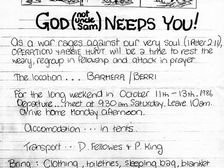 GOD (not uncle Sam) NEEDS YOU!
As a war rages against our very soul (1 Peter 2:11),
OPERATION YABBIE HUNT will be a time to rest the
weary, regroup in fellowship and attack in prayer.
The location ... BARMERA / BERRI
For the long weekend in October 11th - 13th, 1986
Departure... meet at 9.30am Saturday. Leave 10am.
Arrive home Monday afternoon.
Accomodation ... in tents.
Transport .. D. Fellowes + P. King
Bring : Clothing, toiletries, sleeping bag, blanket